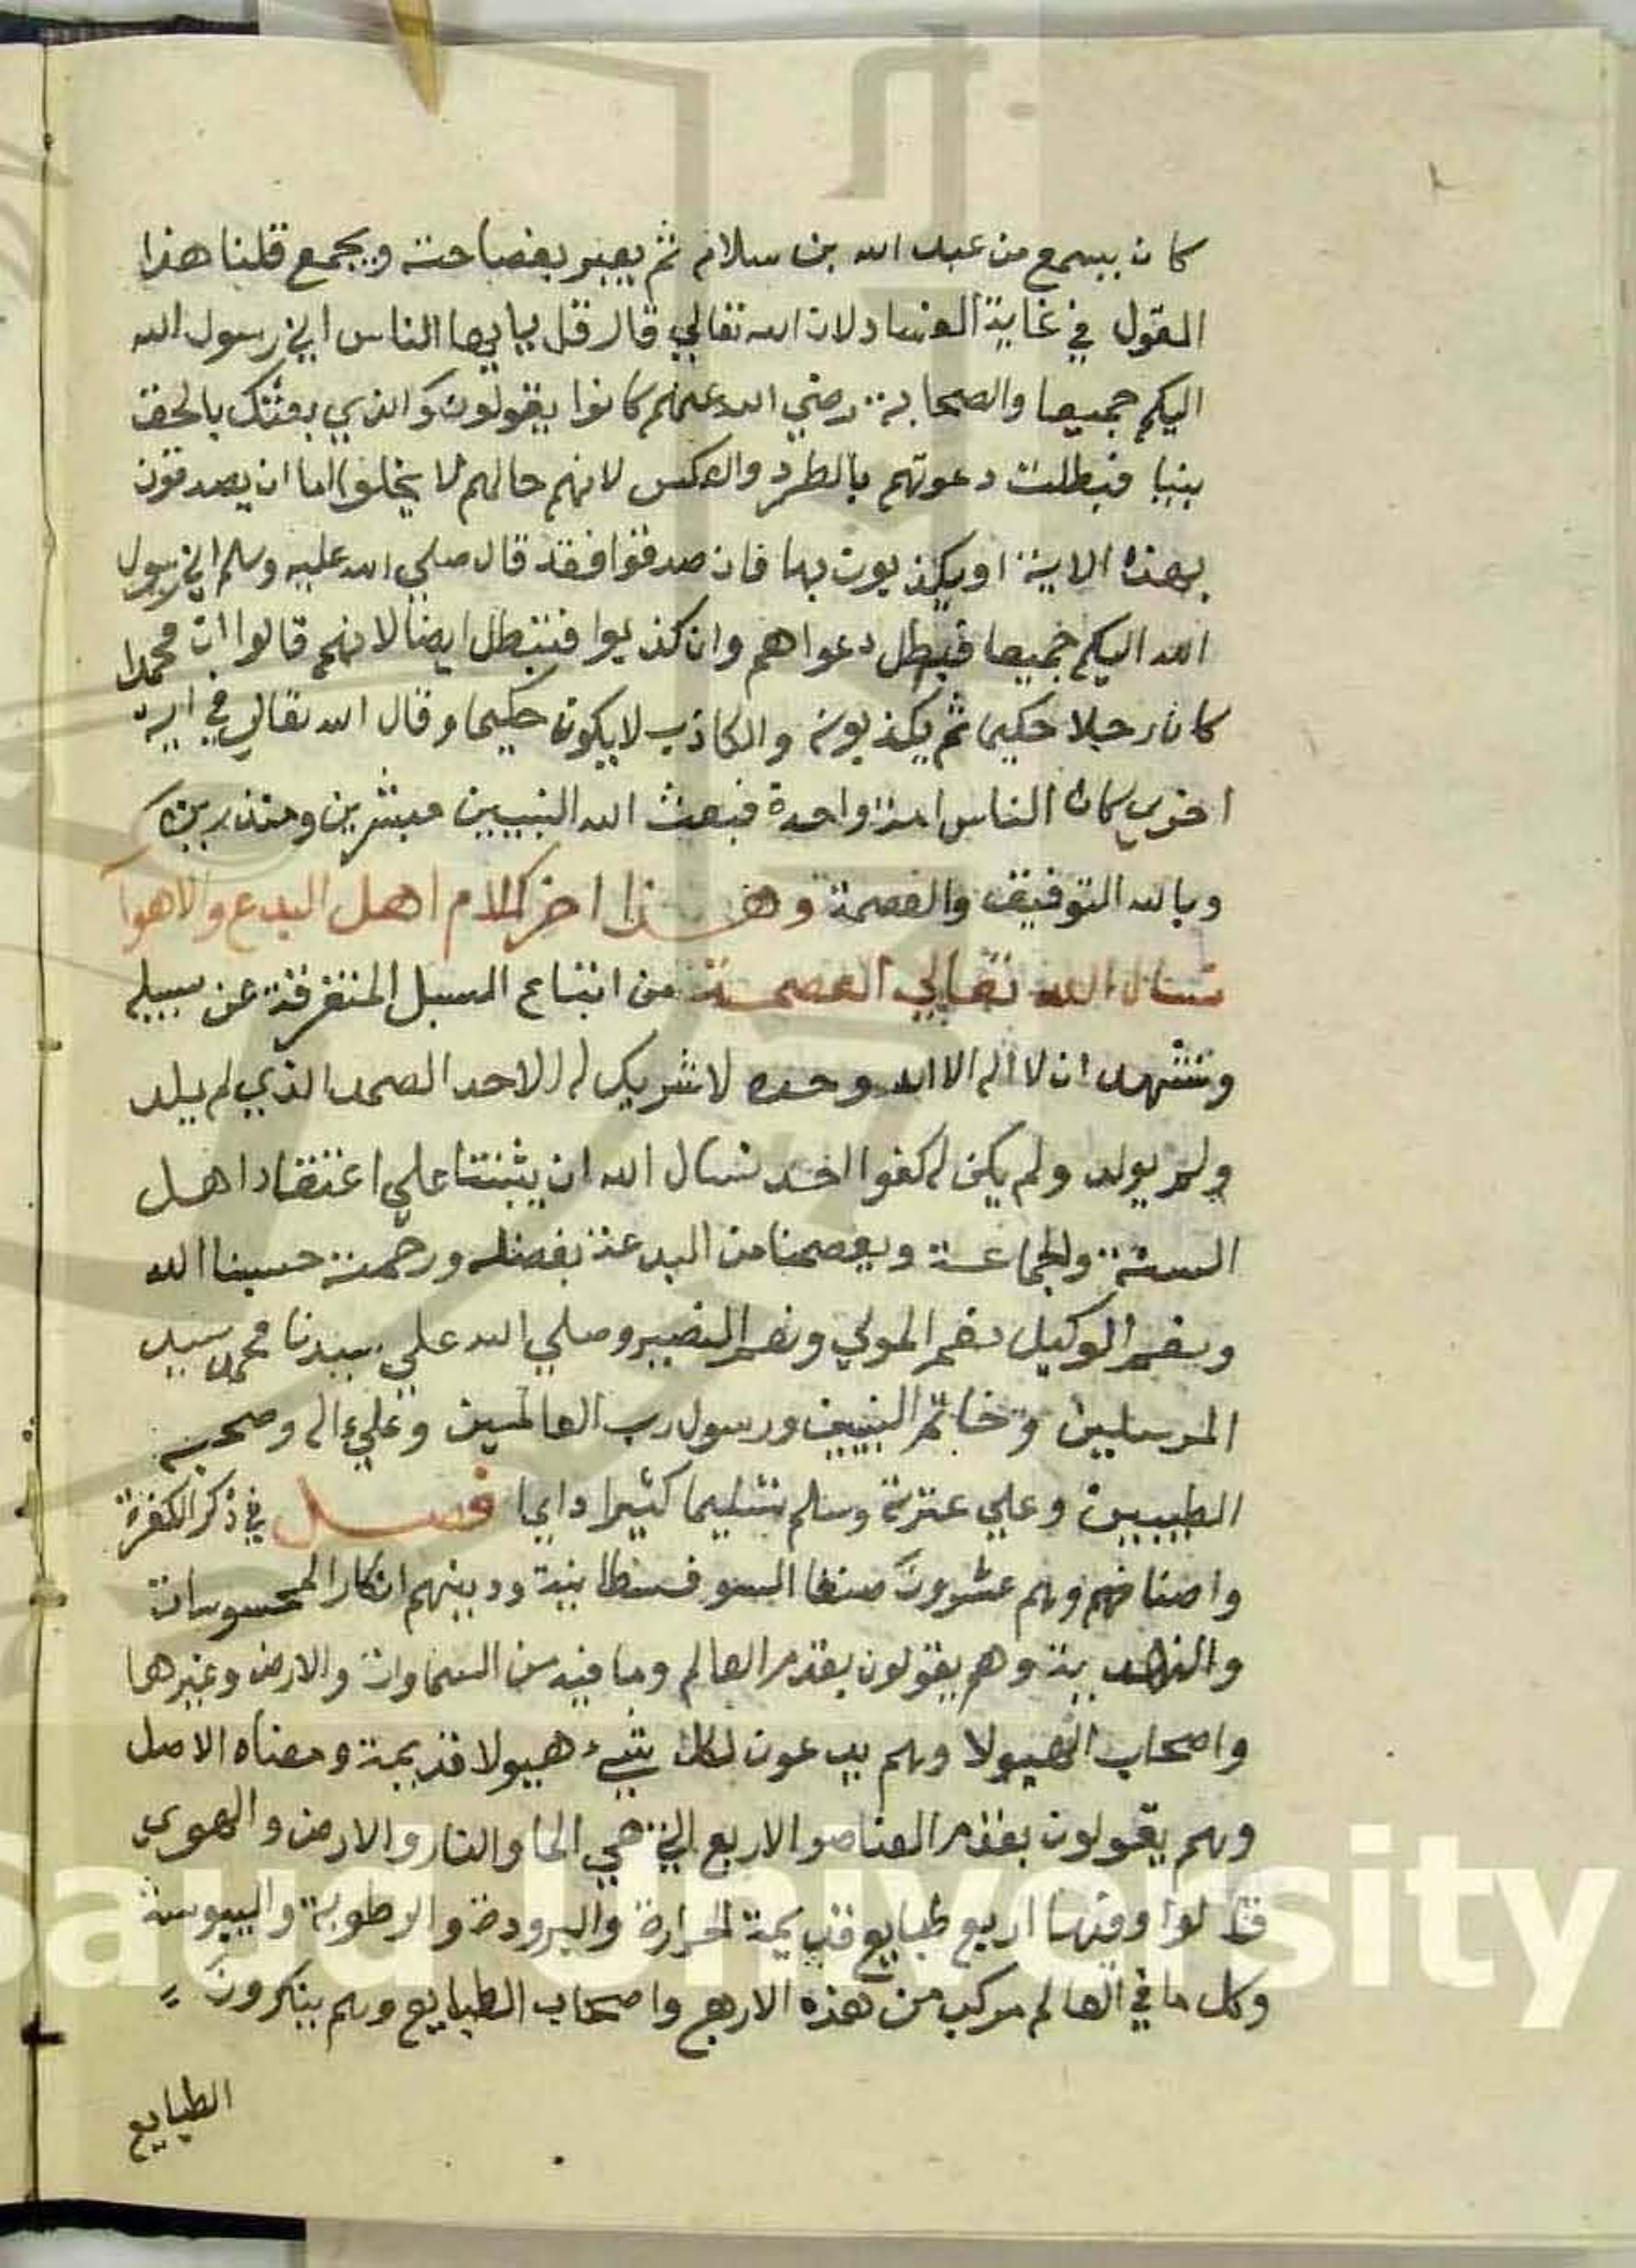 كان يسمع من عبد الله بن سلام ثم يعبر بفصاحته ويجمع قلنا هذا
القول في غاية الفساد لان الله تعالي قال قل يايها الناس اني رسول الله
اليكم جميعا والصحابة رضي الله عنهم كانوا يقولون والذي بعثك بالحق
نبيا فبطلت دعوتهم بالطرد والعكس لانهم حالهم لا يخلوا اما ان يصدقون
بهذه الاية او يكذبون بها فان صدقوا فقد قال صلي الله عليه وسلم اني رسول
الله اليكم جميعا فبطل دعواهم وان كذبوا فتبطل ايضا لانهم قالوا ان محمدا
كان رجلا حكيما ثم يكذبونه والكاذب لا يكون حكيما وقال الله تعالي في اية
اخري كان الناس امة واحدة فبعث الله النبيين مبشرين ومنذرين
وبالله التوفيق والعصمة وهذا اخر كلام اهل البدع والاهوآ
نسال الله تعالي العصمة من اتباع السبل المتفرقة عن سبيله
ونشهد ان لا اله الا الله وحده لا شريك له الاحد الصمد الذي لم يلد
ولم يولد ولم يكن له كفوا احد نسال الله ان يثبتنا علي اعتقاد اهل
السنة والجماعة ويعصمنا من البدعة بفضله ورحمته حسبنا الله
ونعم الوكيل نعم المولي ونعم النصير وصلي الله علي سيدنا محمد سيد
المرسلين وخاتم النبيين ورسول رب العالمين وعلي ءاله وصحبه
الطيبين وعلي عترته وسلم تسليما كثيرا دايما فصل في ذكر الكفرة
واصنافهم وهم عشرون صنفا السوفسطانية ودينهم انكار المحسوسات
والدهرية وهم يقولون بقدم العالم وما فيه من السماوات والارض وغيرها
واصحاب الهيولا وهم يدعون لكل شيء هيولا قديمة ومعناه الاصل
وهم يقولون بقدم العناصر الاربع التي هي الما والنار والارض والهوي
قالوا وفيها اربع طبايع قديمة الحرارة والبرودة والرطوبة واليبوسة
وكل ما في العالم مركب من هذه الاربع واصحاب الطبايع وهم ينكرون
الطبايع
Saud University